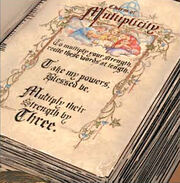 Multiplicity
To multiply your strength,
these words at length
Take my powers,
Blessed be.
Multiply their
Strength by
Three.